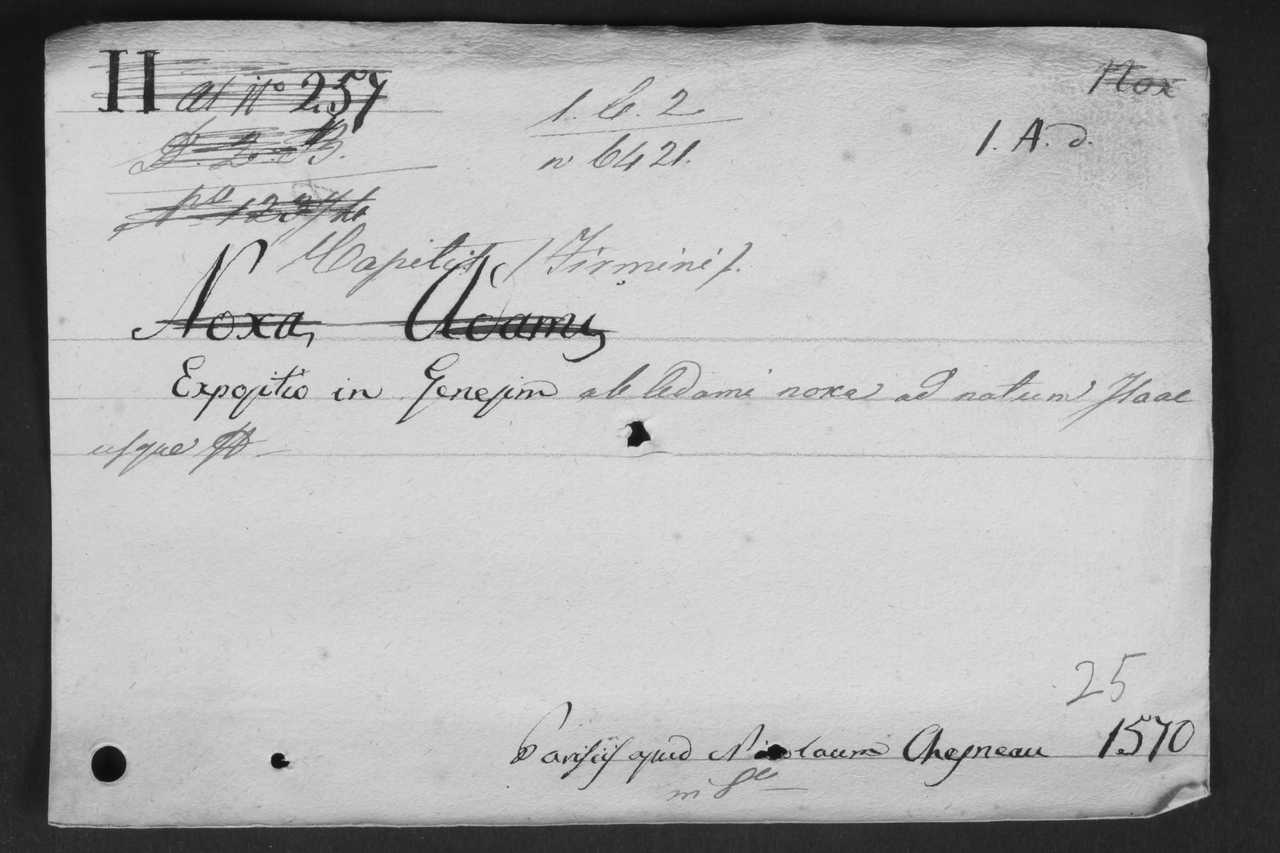 H at N° 257
1. C. 2
Nox
D. 2. B.
n 6421.
1. A. d.
Capitis (Firmini).
Noxa, Adami,
Expositio in Genesim ab Adami noxa ad natum Isaac
usque
25
Parisiis apud Nicolaum Chesneau 1570
in 8°